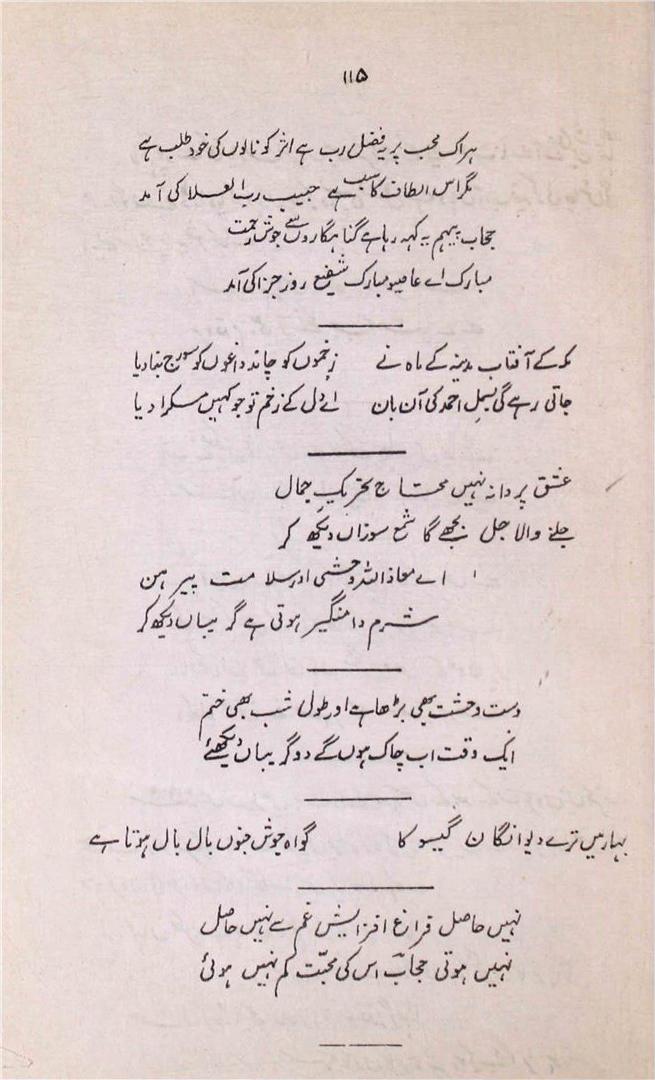 ۱۱۵
ہر اک محب پر یہ فضل رب ہے اثر کو نالوں کی خود طلب ہے
مگر اس الطاف کا سبب ہے حبیب رب العلا کی آمد
حجاب پیہم یہ کہہ رہا ہے گناہگاروں سے جوش رحمت
مبارک اے عاصیو مبارک شفیع روز جزا کی آمد
مکہ کے آفتاب مدینہ کے ماہ نے زخموں کو چاند داغوں کو سورج بنا دیا
جاتی رہے گی بسمل احمد کی آن بان اے دل کے زخم تو جو کہیں مسکرا دیا
عشق پروانہ نہیں محتاج تحریکِ جمال
جلنے والا جل بجھے گا شمع سوزاں دیکھ کر
اے معاذ اللہ وحشی اور سلامت پیرہن
شرم دامنگیر ہوتی ہے گریباں دیکھ کر
دست وحشت بھی بڑھا ہے اور طول شب بھی ختم
ایک وقت اب چاک ہوں گے دو گریباں دیکھئے
بہار میں ترے دیوانگان گیسو کا گواہ جوش جنوں بال بال ہوتا ہے
نہیں حاصل فراغ افزایش غم سے نہیں حاصل
نہیں ہوتی حجابؔ اس کی محبّت کم نہیں ہوئی